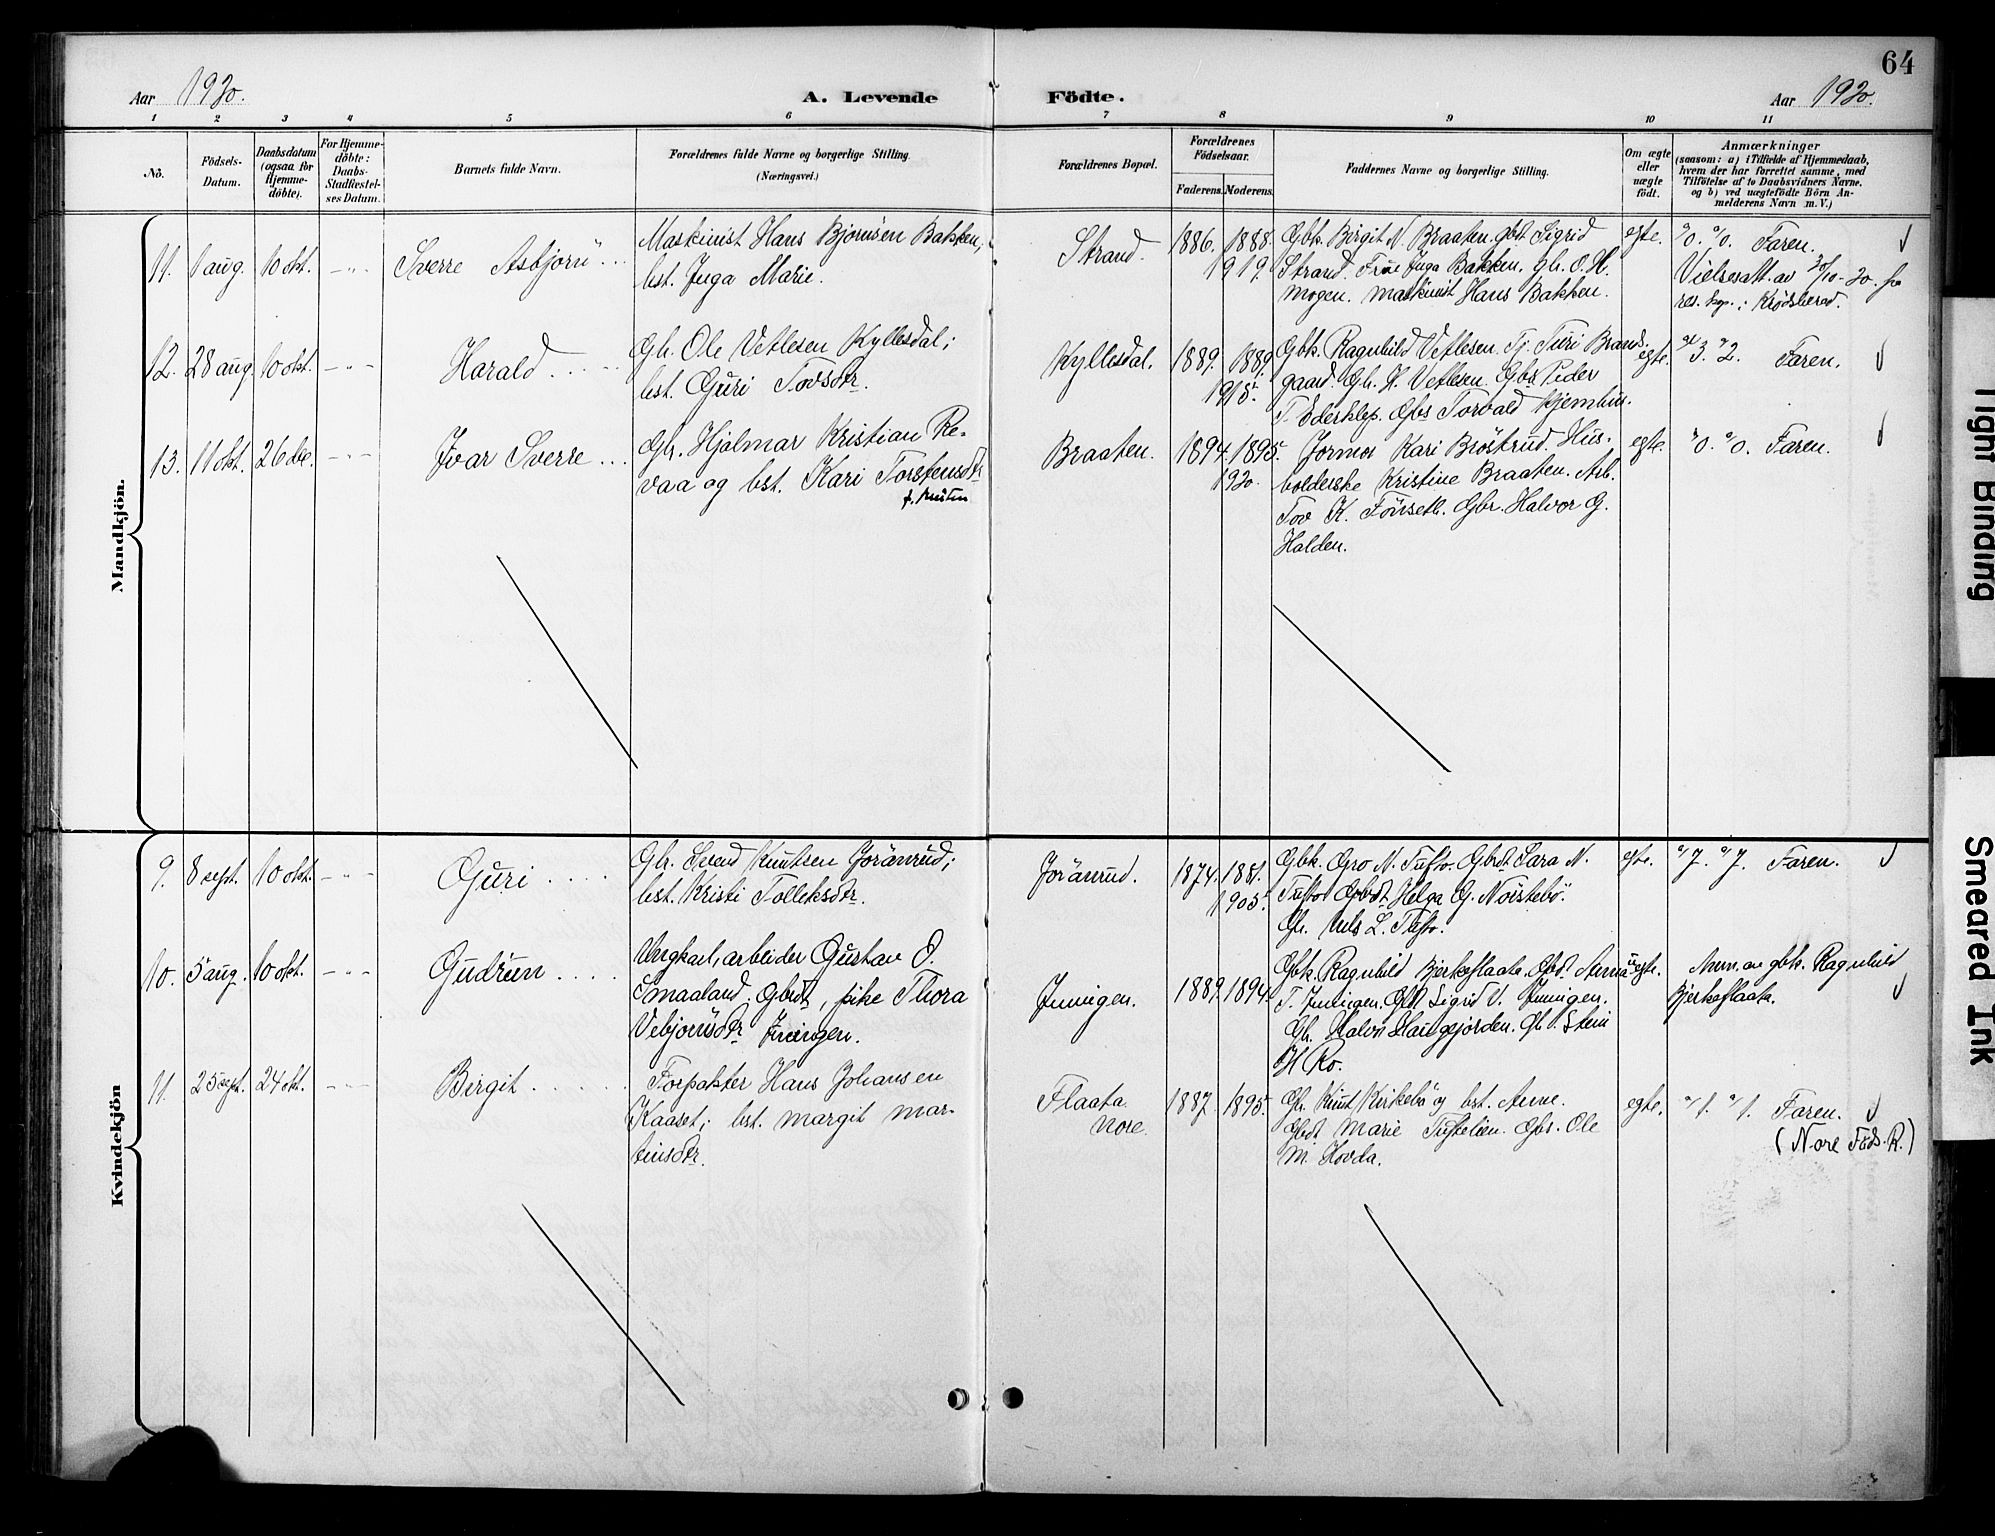 64
Aar 1920.
A. Levende
Födte.
Aar 1920.
1 2 3 4 5 6 7 8 9 10 11
No.
Födsels-
Datum.
Daabsdatum
(ogsaa for
Hjemme-
döbte).
For Hjemme-
döbte:
Daabs-
Stadfæstel-
ses Datum.
Barnets fulde Navn.
Forældrenes fulde Navne og borgerlige Stilling.
(Næringsvei.)
Forældrenes Bopæl.
Forældrenes
Födselsaar.
Faderens. Moderens.
Faddernes Navne og borgerlige Stilling.
Om ægte
eller
uægte
födt.
Anmærkninger
(saasom: a) i Tilfælde af Hjemmedaab,
hvem der har forrettet samme, med
Tilföielse af to Daabsvidners Navne,
og b) ved uægtefödte Börn An-
melderens Navn m. V.)
Mandkjön.
11. 1 aug. 10 okt. -"- Sverre Asbjörn ...
Maskinist Hans Bjørnsen Bakken,
hst. Inga Marie.
Strand. 1886. 1888.
1919.
Gbk. Birgit N. Braaten. gbdt. Sigrid
Strand. Frue Inga Bakken. Gb. O. H.
Mogen. Maskinist Hans Bakken.
egte.
Faren.
Vielsesatt. av 20/10-20. fra
res. kap. i Krødsherad.
12. 28 aug. 10 okt. -"- Harald ....
Gb. Ole Vetlesen Kyllesdal;
hst. Guri Tovsdtr.
Kyllesdal. 1889. 1889.
1915.
Gbk. Ragnhild Vetlesen. Tj. Turi Brands-
gaard. Gb. H. Vetlesen. Gbs Peder
T. Ederklep. Gbs Torvald Kjemhus.
egte.
3. 2. Faren.
13. 11 okt. 26 dec. -"- Ivar Sverre ...
Gb. Hjalmar Kristian Re-
vaa og hst. Kari Torstensdtr
Braaten. 1894. 1895.
1920.
Jormor Kari Bröstrud. Hus-
bolderske Kristine Braaten. Arb.
Tov K. Fönset. Gbr. Halvor G.
Halden.
egte.
0. 0. Faren.
Kvindekjön
9. 8 sept. 10 okt. -"- Guri ....
Gb. Svend Knutsen Joränrud;
hst. Kristi Tolleksdtr.
Joränrud. 1874. 1881.
1905.
Gbk. Gro N. Tufto. Gbdt Sara N.
Tufto Gbdt Helga G. Nörstebö.
Gb. Nils L. Tufto.
egte.
7. 7. Faren.
10. 5 aug. 10 okt. -"- Gudrun ....
Ungkarl, arbeider Gustav O.
Smaaland; Gbdt, pike Thora
Vebjörnsdtr Juvingen.
1889. 1894.
Gbk. Ragnhild Bjerkeflaata. Gbdt. Anna
Gbdt Sigrid V.
H. Ro.
uegte.
Anm. av gbk. Ragnhild
Bjerkeflaata.
11. 25 sept. 24 okt. -"- Birgit .....
Forpakter Hans Johansen
Kaaset; hst. Margit Mar-
tinsdtr.
Flaata
Nore.
1887. 1895.
Gb. Knut Kirkebö og hst. Anne.
Gbdt Marie Tuftelien. Gbs. Ole
M. Hovda.
egte.
1. 1. Faren.
(Nore Föds. R.)
Tight Binding
Smeared Ink